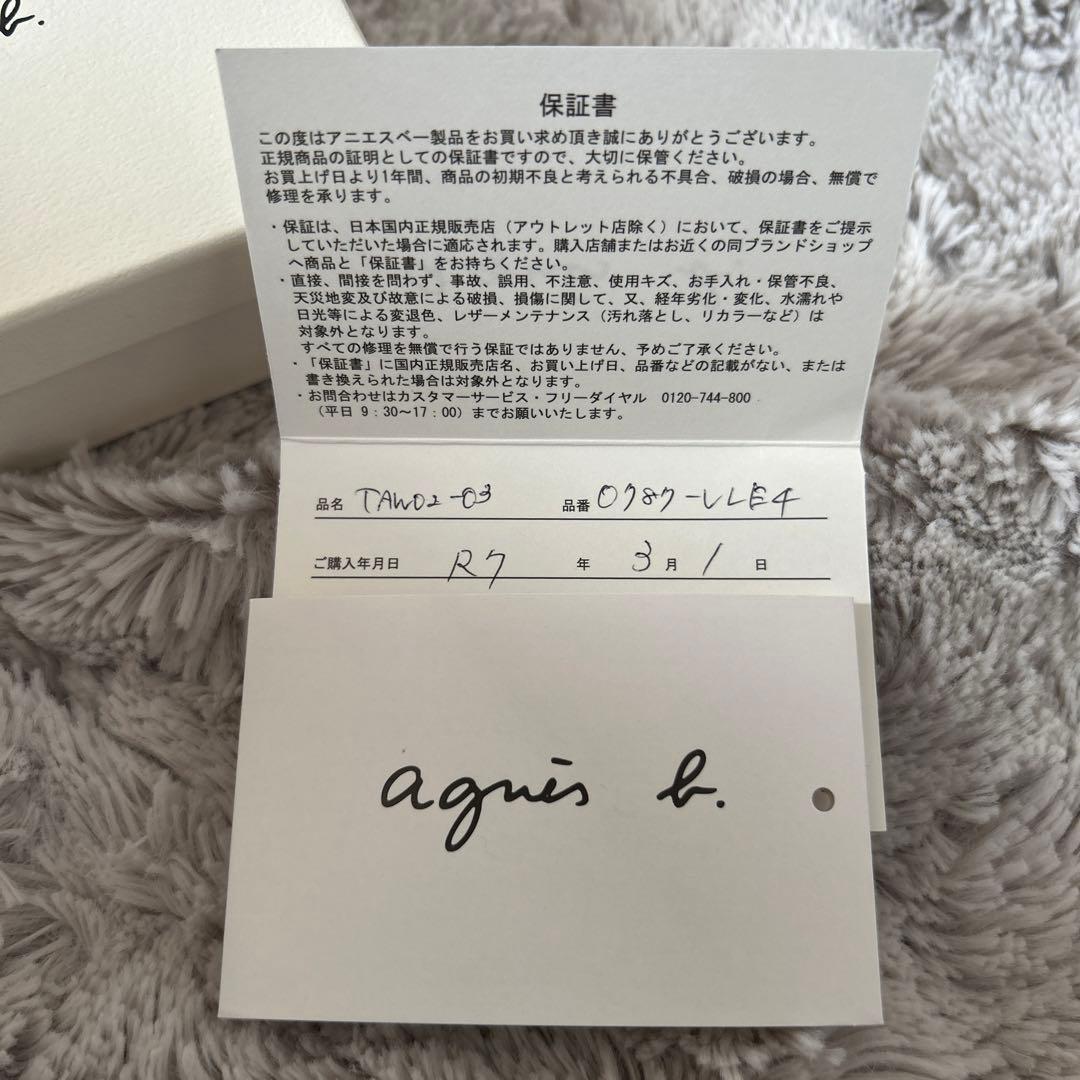 b.
保証書
この度はアニエスベー製品をお買い求め頂き誠にありがとうございます。
正規商品の証明としての保証書ですので、大切に保管ください。
お買上げ日より1年間、商品の初期不良と考えられる不具合、破損の場合、無償で
修理を承ります。
・保証は、日本国内正規販売店（アウトレット店除く）において、保証書をご提示
していただいた場合に適応されます。購入店舗またはお近くの同ブランドショップ
へ商品と「保証書」をお持ちください。
・直接、間接を問わず、事故、誤用、不注意、使用キズ、お手入れ・保管不良、
天災地変及び故意による破損、損傷に関して、又、経年劣化・変化、水濡れや
日光等による変退色、レザーメンテナンス（汚れ落とし、リカラーなど）は
対象外となります。
すべての修理を無償で行う保証ではありません、予めご了承ください。
・「保証書」に国内正規販売店名、お買い上げ日、品番などの記載がない、または
書き換えられた場合は対象外となります。
・お問合わせはカスタマーサービス・フリーダイヤル 0120-744-800
（平日 9：30～17：00）までお願いいたします。
品名 TAW02-03 品番 0787-VLE4
ご購入年月日 R7 年 3 月 1 日
agnès b.